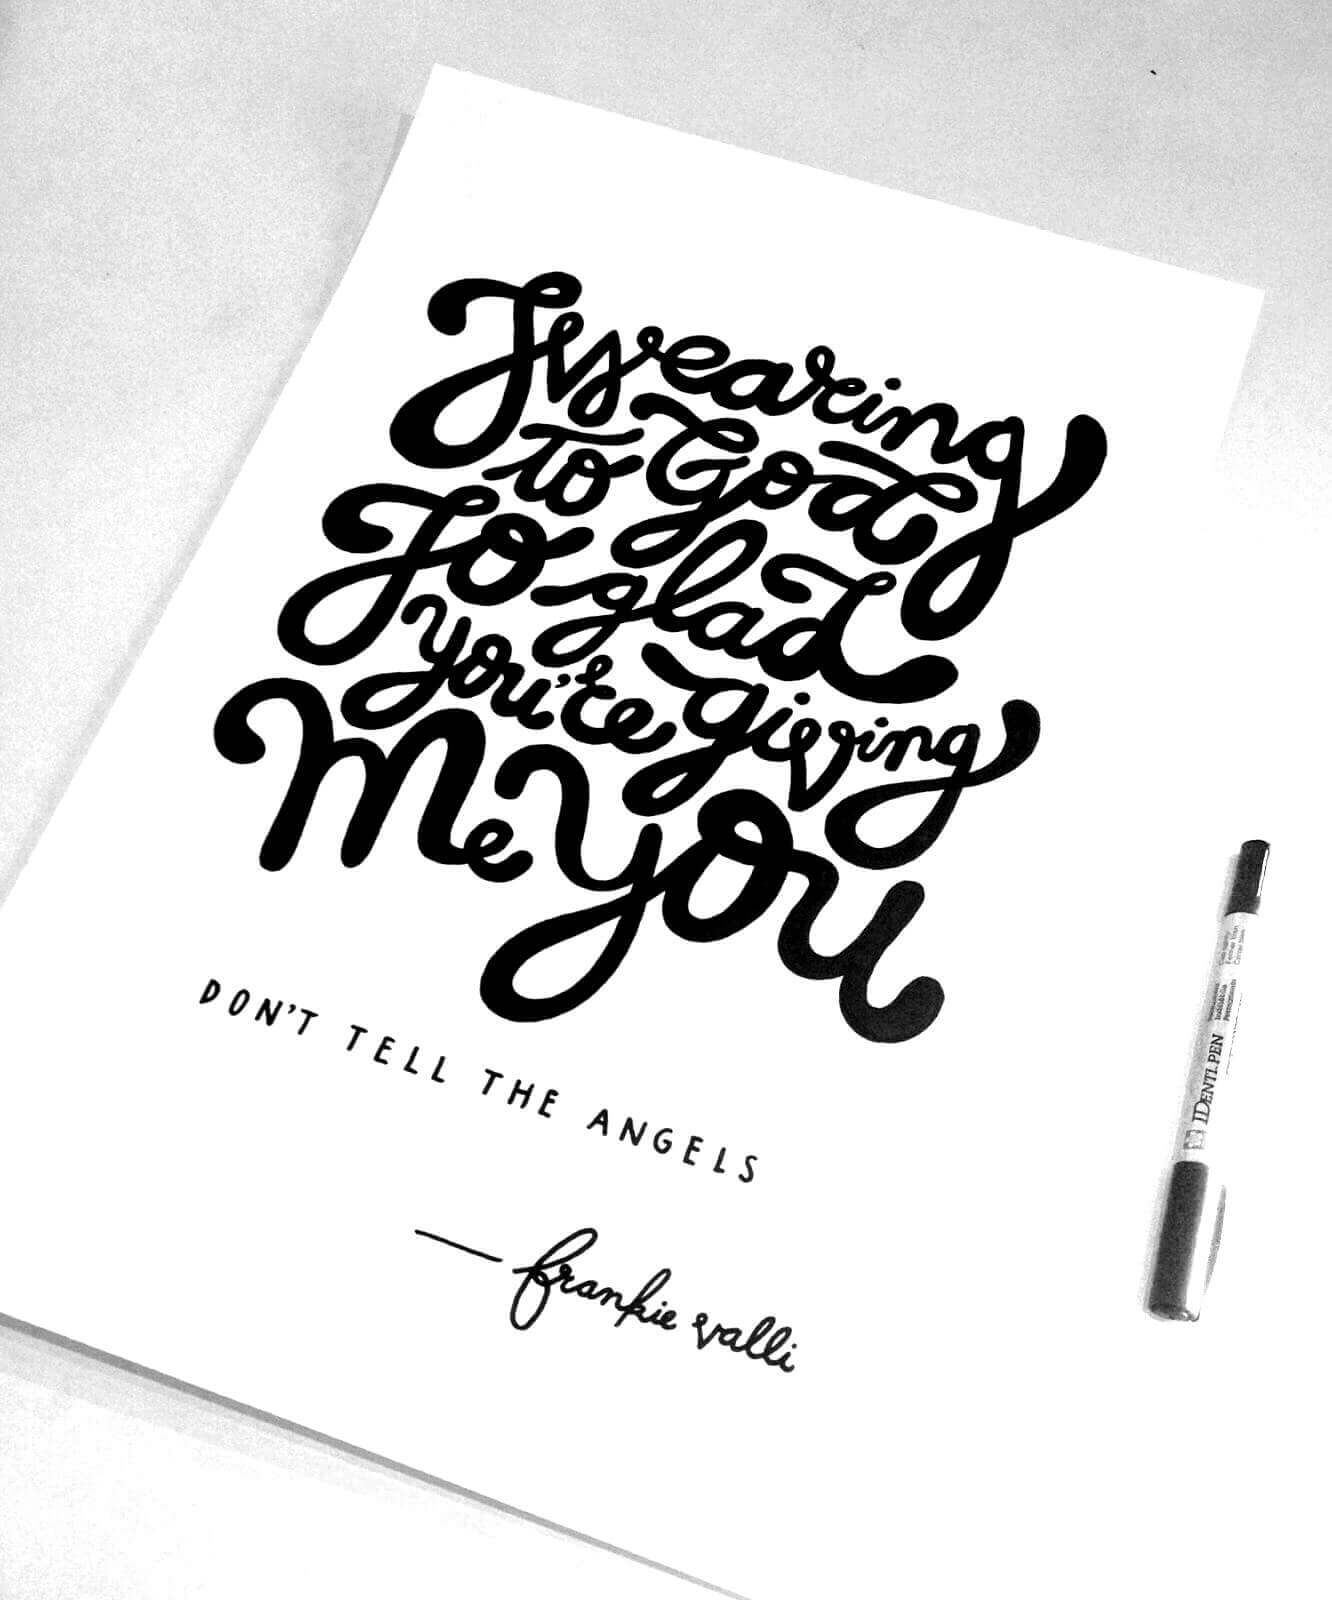 Swearing
to God
So glad
you're giving
Me you
DON'T TELL THE ANGELS
— frankie valli
IDENTI.PEN